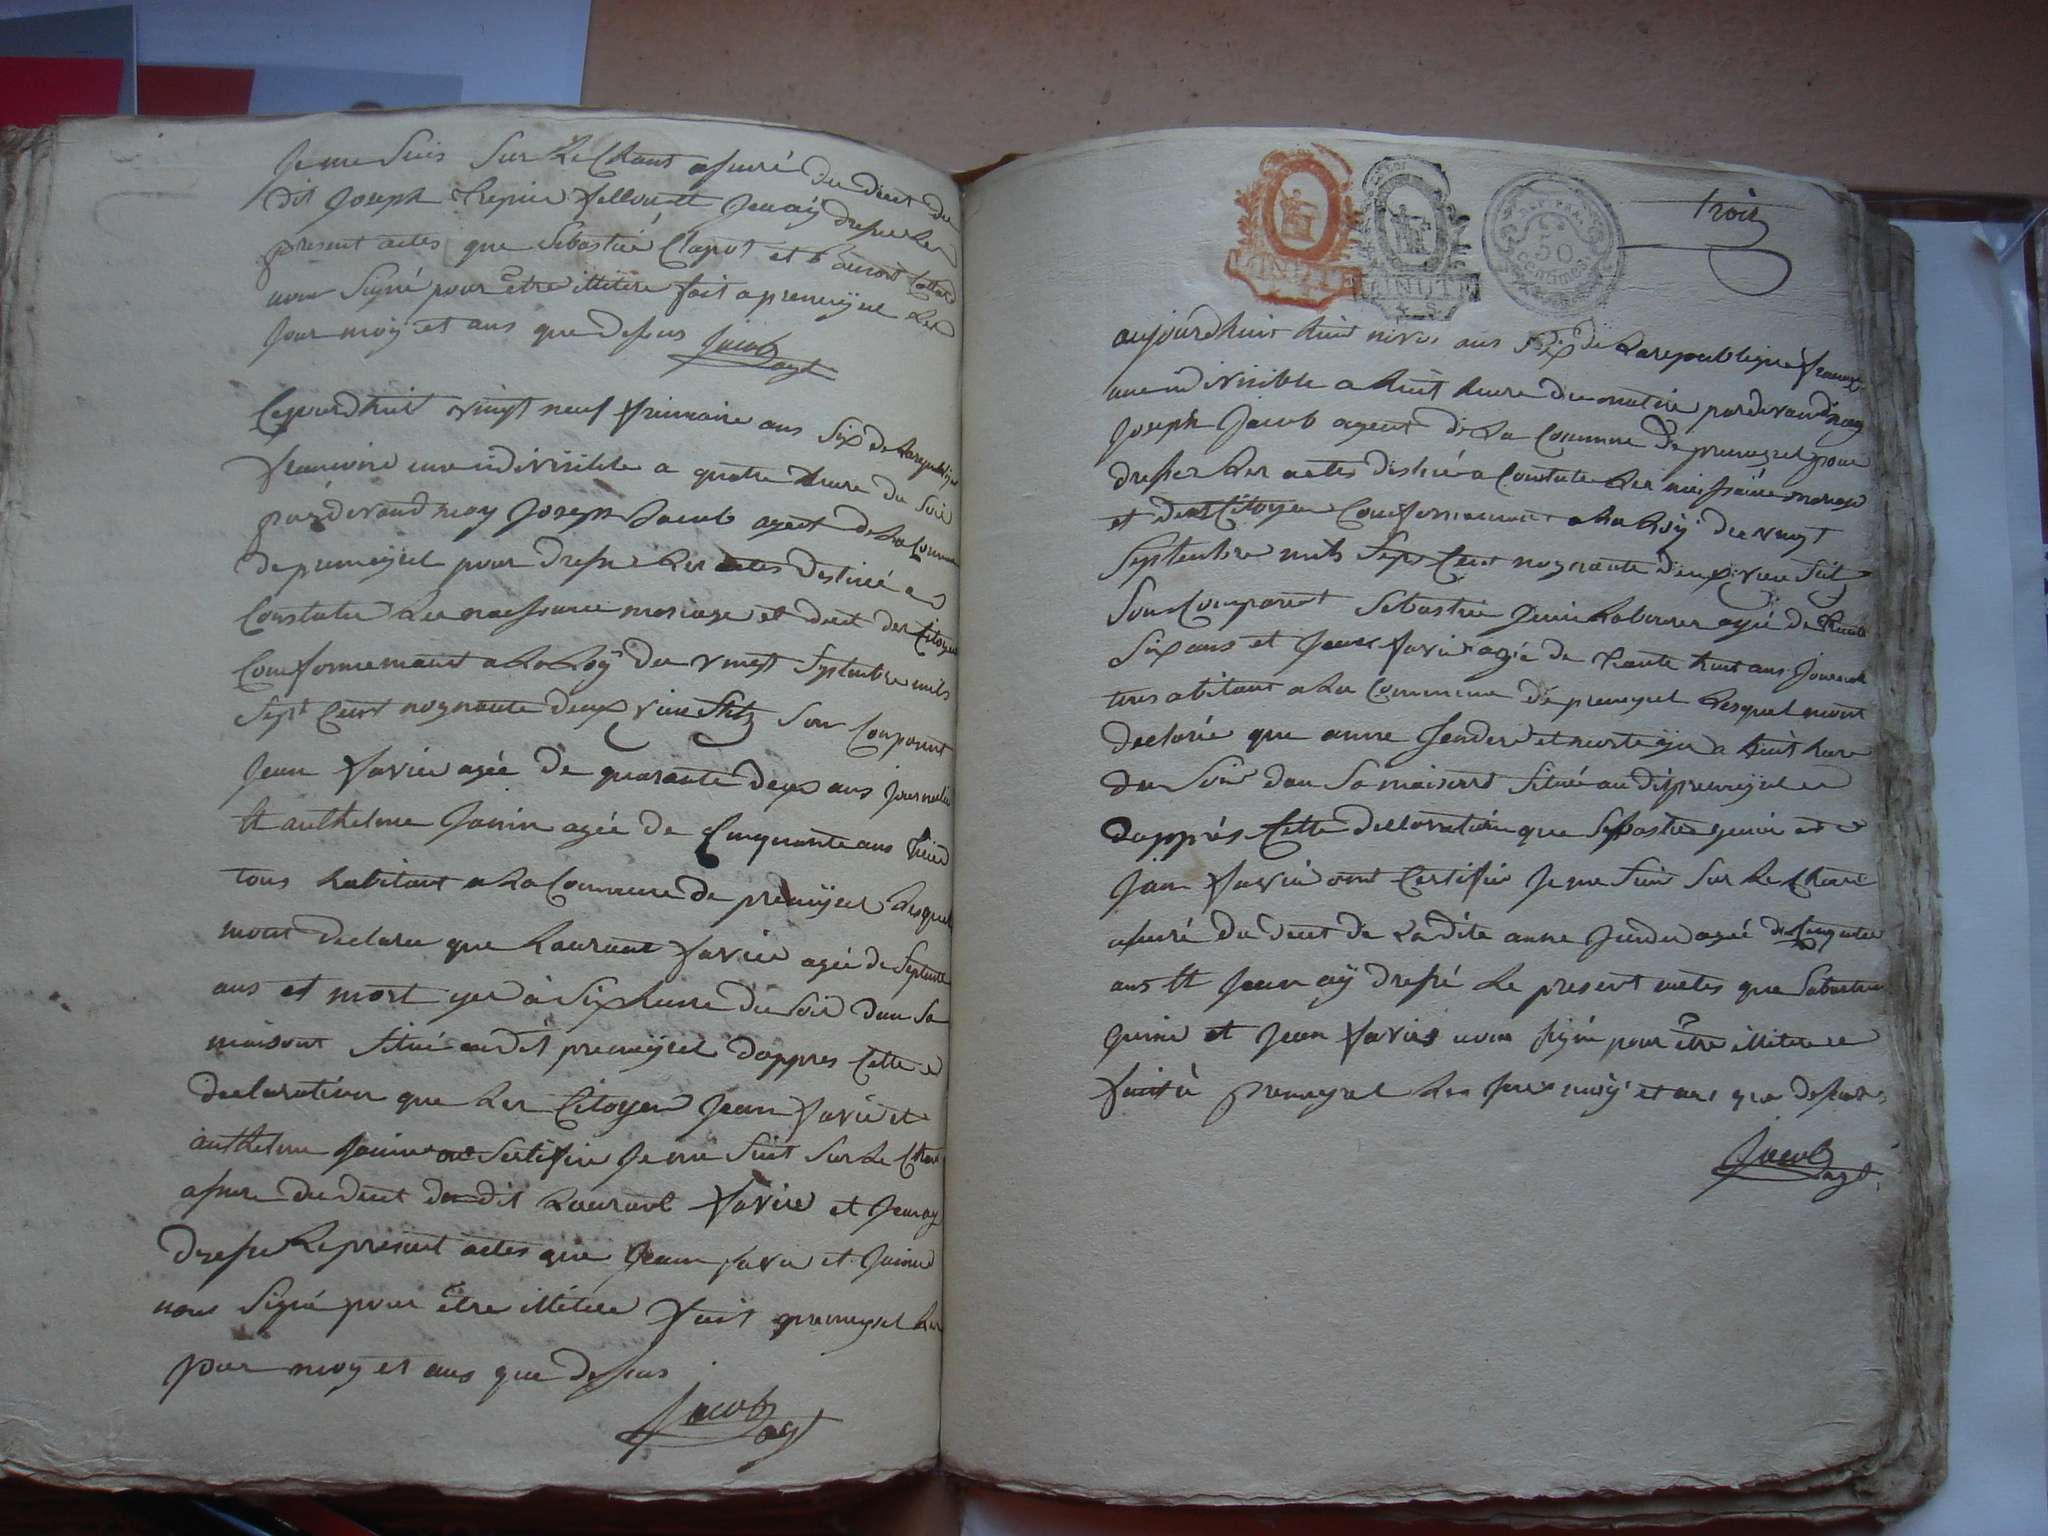 Je me suis sur le Chant assuré du deset du
dit Joseph et Jenaÿ dressé Les
present actes que Sebastié Clapot et
nom Signé pour être illitere fait a premeÿsel Les
Jour moy et ans que desus Jacob
agt
vingt neuf frimaire ans Six de
francoise une indivisible a quatre heure du Soir
par devand moy Joseph Jacob agent de La Commune
de premeÿsel pour dresse Les actes destiné a
Constate Les naissance mariage et deset des Citoyen
Conformement a La Loÿ du vingt Septembre mils
Sept Cent noynante deux vieu Stil Son Conparent
Jean favie agée de quarante deux ans journalié
et anthelme Janin agée de Cinquante ans
tous habitant a La Commune de premeÿsel Lesquel
mont declaré que Laurant favie agée de Septante
ans et mort yer à Six heure du Soir dan Sa
maisont Situé audit premeÿsel dappres Cette
declaration que Les Citoyen Jean favie et
anthelme Janin ont Sertifie Je me Suit Sur Le Chant
assure du deset du dit Laurant favie et Jenay
dresse Le present actes que Jean favie et Janin
nons Signé pour être illitere fait premeysel Les
jour moy et ans que dessus
Jacob
agt
MINUTE
MINUTE
REP. FRA.
50
centimes
trois
aujourdhuit huit nivos ans Six de La republique francoise
une indivisible a huit heure du matin par devand moy
Joseph Jacob agent de La Commune de premeysel pour
dresse Les actes destiné a Constate Les naissance mariage
et deset Citoyen Conformement a La Loÿ du vingt
Septembre mils Sept Cent noynante deux vieu Stil
Son Comparent Sebastien Laboureur agé de trante
Six ans et Jean favie agée de trante huit ans
tous abitant a La Commune de premeysel Lesquel mont
declarée que anne et morte yer a huit hure
du Soir dan Sa maisont Situé au dit premeysel
dapprés Cette declaration que Sebastien et
Jean favie ont Certifie Je me Suis Sur Le Chant
assuré du deset de La dite anne agée de
ans et Jenay dressé Le present actes que Sebastien
et Jean favie nons signé pour être illitere
fait à premeysel Les jour moy et ans que dessus
Jacob
agt